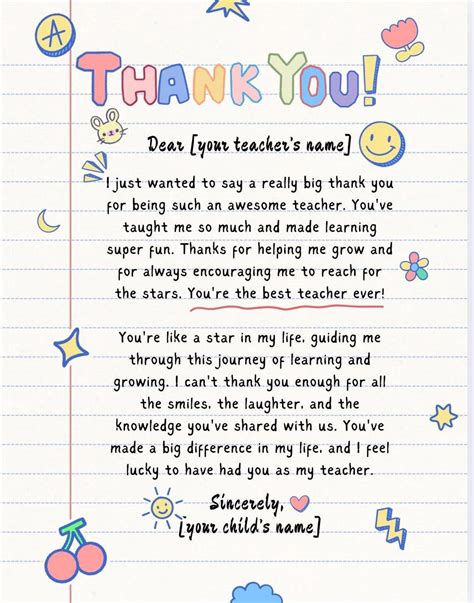 A
THANK YOU!
Dear [your teacher's name]
I just wanted to say a really big thank you
for being such an awesome teacher. You've
taught me so much and made learning
super fun. Thanks for helping me grow and
for always encouraging me to reach for
the stars. You're the best teacher ever!
You're like a star in my life, guiding me
through this journey of learning and
growing. I can't thank you enough for all
the smiles, the laughter, and the
knowledge you've shared with us. You've
made a big difference in my life, and I feel
lucky to have had you as my teacher.
Sincerely,
[your child's name]